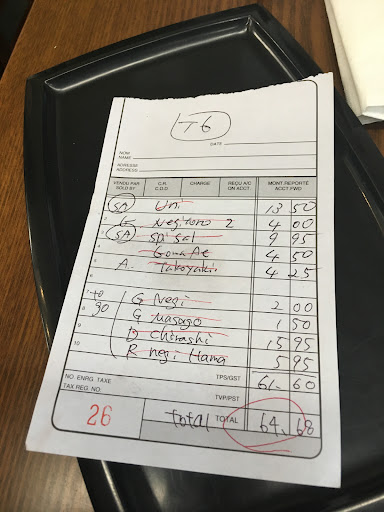 T6
DATE
NOM
NAME
ADRESSE
ADDRESS
VENDU PAR SOLD BY C.R. C.O.D. CHARGE RECU A/C ON ACCT. MONT. REPORTÉ ACCT. FWD
SA Uni 13 50
Negitoro 2 4 00
SA Spi Sal 9 95
Goma Ae 4 50
A. Takoyaki 4 25
to go
G Negi 2 00
G Masago 1 50
D Chirashi 15 95
R negi Hama 5 95
NO. ENRG. TAXE TPS/GST 61. 60
TAX REG. NO. TVP/PST
26 total TOTAL 64. 68